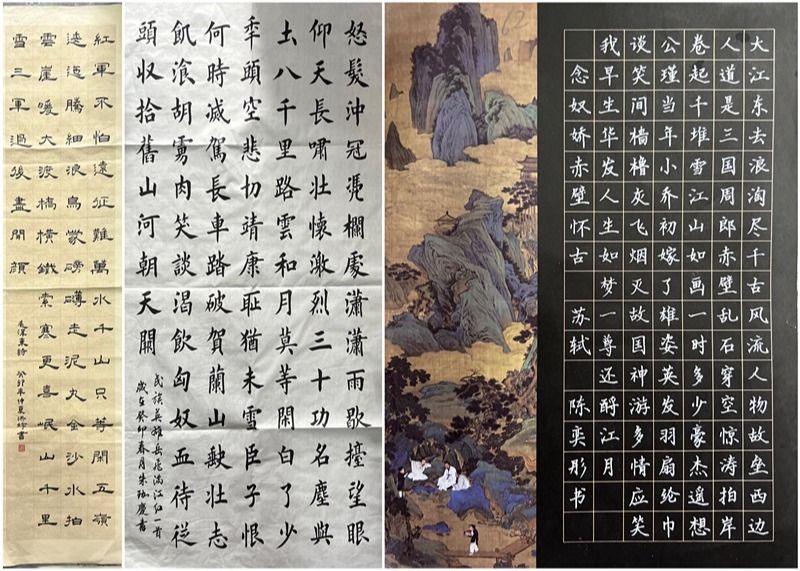 紅軍不怕遠征難萬水千山只等閑五嶺
逶迤騰細浪烏蒙磅礴走泥丸金沙水拍
雲崖暖大渡橋橫鐵索寒更喜岷山千里
雪三軍過後盡開顏
毛澤東詩 癸卯年仲夏 書
怒髮沖冠凴欄處瀟瀟雨歇擡望眼
仰天長嘯壯懷激烈三十功名塵與
土八千里路雲和月莫等閑白了少
秊頭空悲切靖康恥猶未雪臣子恨
何時滅駕長車踏破賀蘭山缺壯志
飢湌胡虜肉笑談渴飲匈奴血待從
頭收拾舊山河朝天闕
民族英雄岳飛滿江紅一首
歲在癸卯春月朱珈慶書
大江东去浪淘尽千古风流人物故垒西边
人道是三国周郎赤壁乱石穿空惊涛拍岸
卷起千堆雪江山如画一时多少豪杰遥想
公瑾当年小乔初嫁了雄姿英发羽扇纶巾
谈笑间樯橹灰飞烟灭故国神游多情应笑
我早生华发人生如梦一尊还酹江月
念奴娇赤壁怀古 苏轼 陈奕彤书